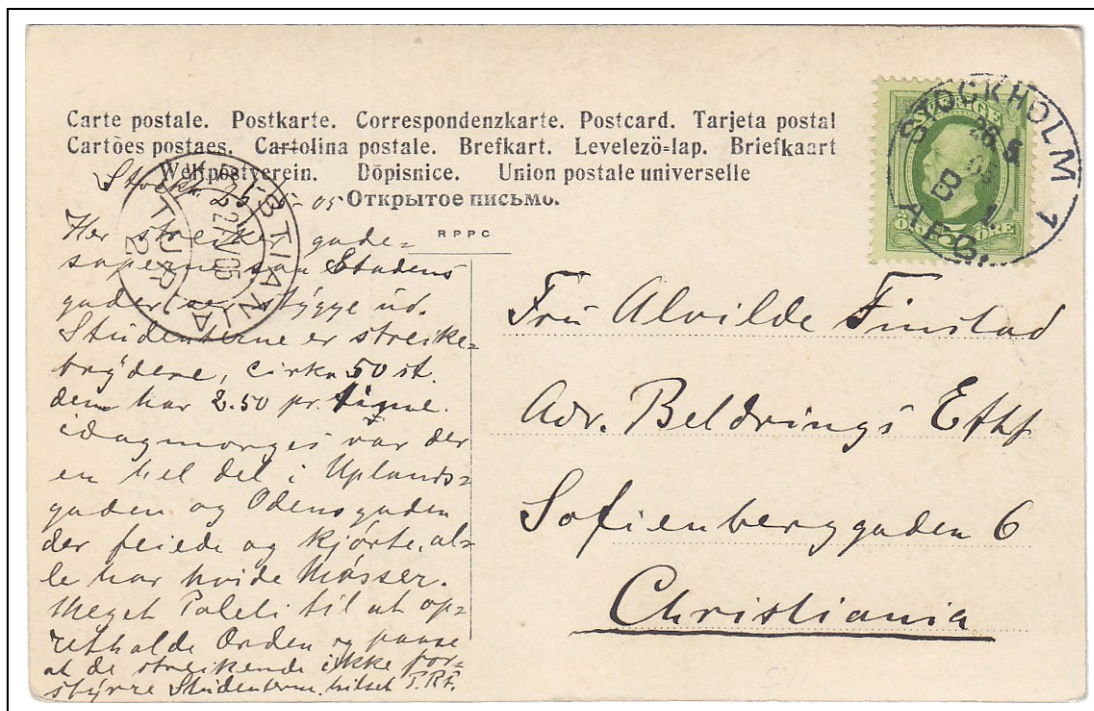 Carte postale. Postkarte. Correspondenzkarte. Postcard. Tarjeta postal
Cartões postaes. Cartolina postale. Brefkart. Levelező-lap. Briefkaart
Weltpostverein. Dopisnice. Union postale universelle
Открытое письмо.
RPPC
STOCKHOLM 1
26 5
B
AFG.
ÖRE 5 ÖRE
TIANIA
27 V 05
TUR
2
Stockh. 25-5-05
Her streiker gade-
soperne saa Stadens
gader ser stygge ud.
Studenterne er streike-
brydere, cirka 50 st.
dem har 2.50 pr.
idagmorges var der
en hel del i Uplands-
gaden og Odensgaden
der feiede og kjørte, al-
le har hvide Mösser.
Meget Politi til at op-
retholde Orden og passe
at de streikende ikke for-
styrre Studenterne. hilset T.RF.
Fru Alvilde Finstad
Adr. Beldrings Efthf
Sofienberggaden 6
Christiania